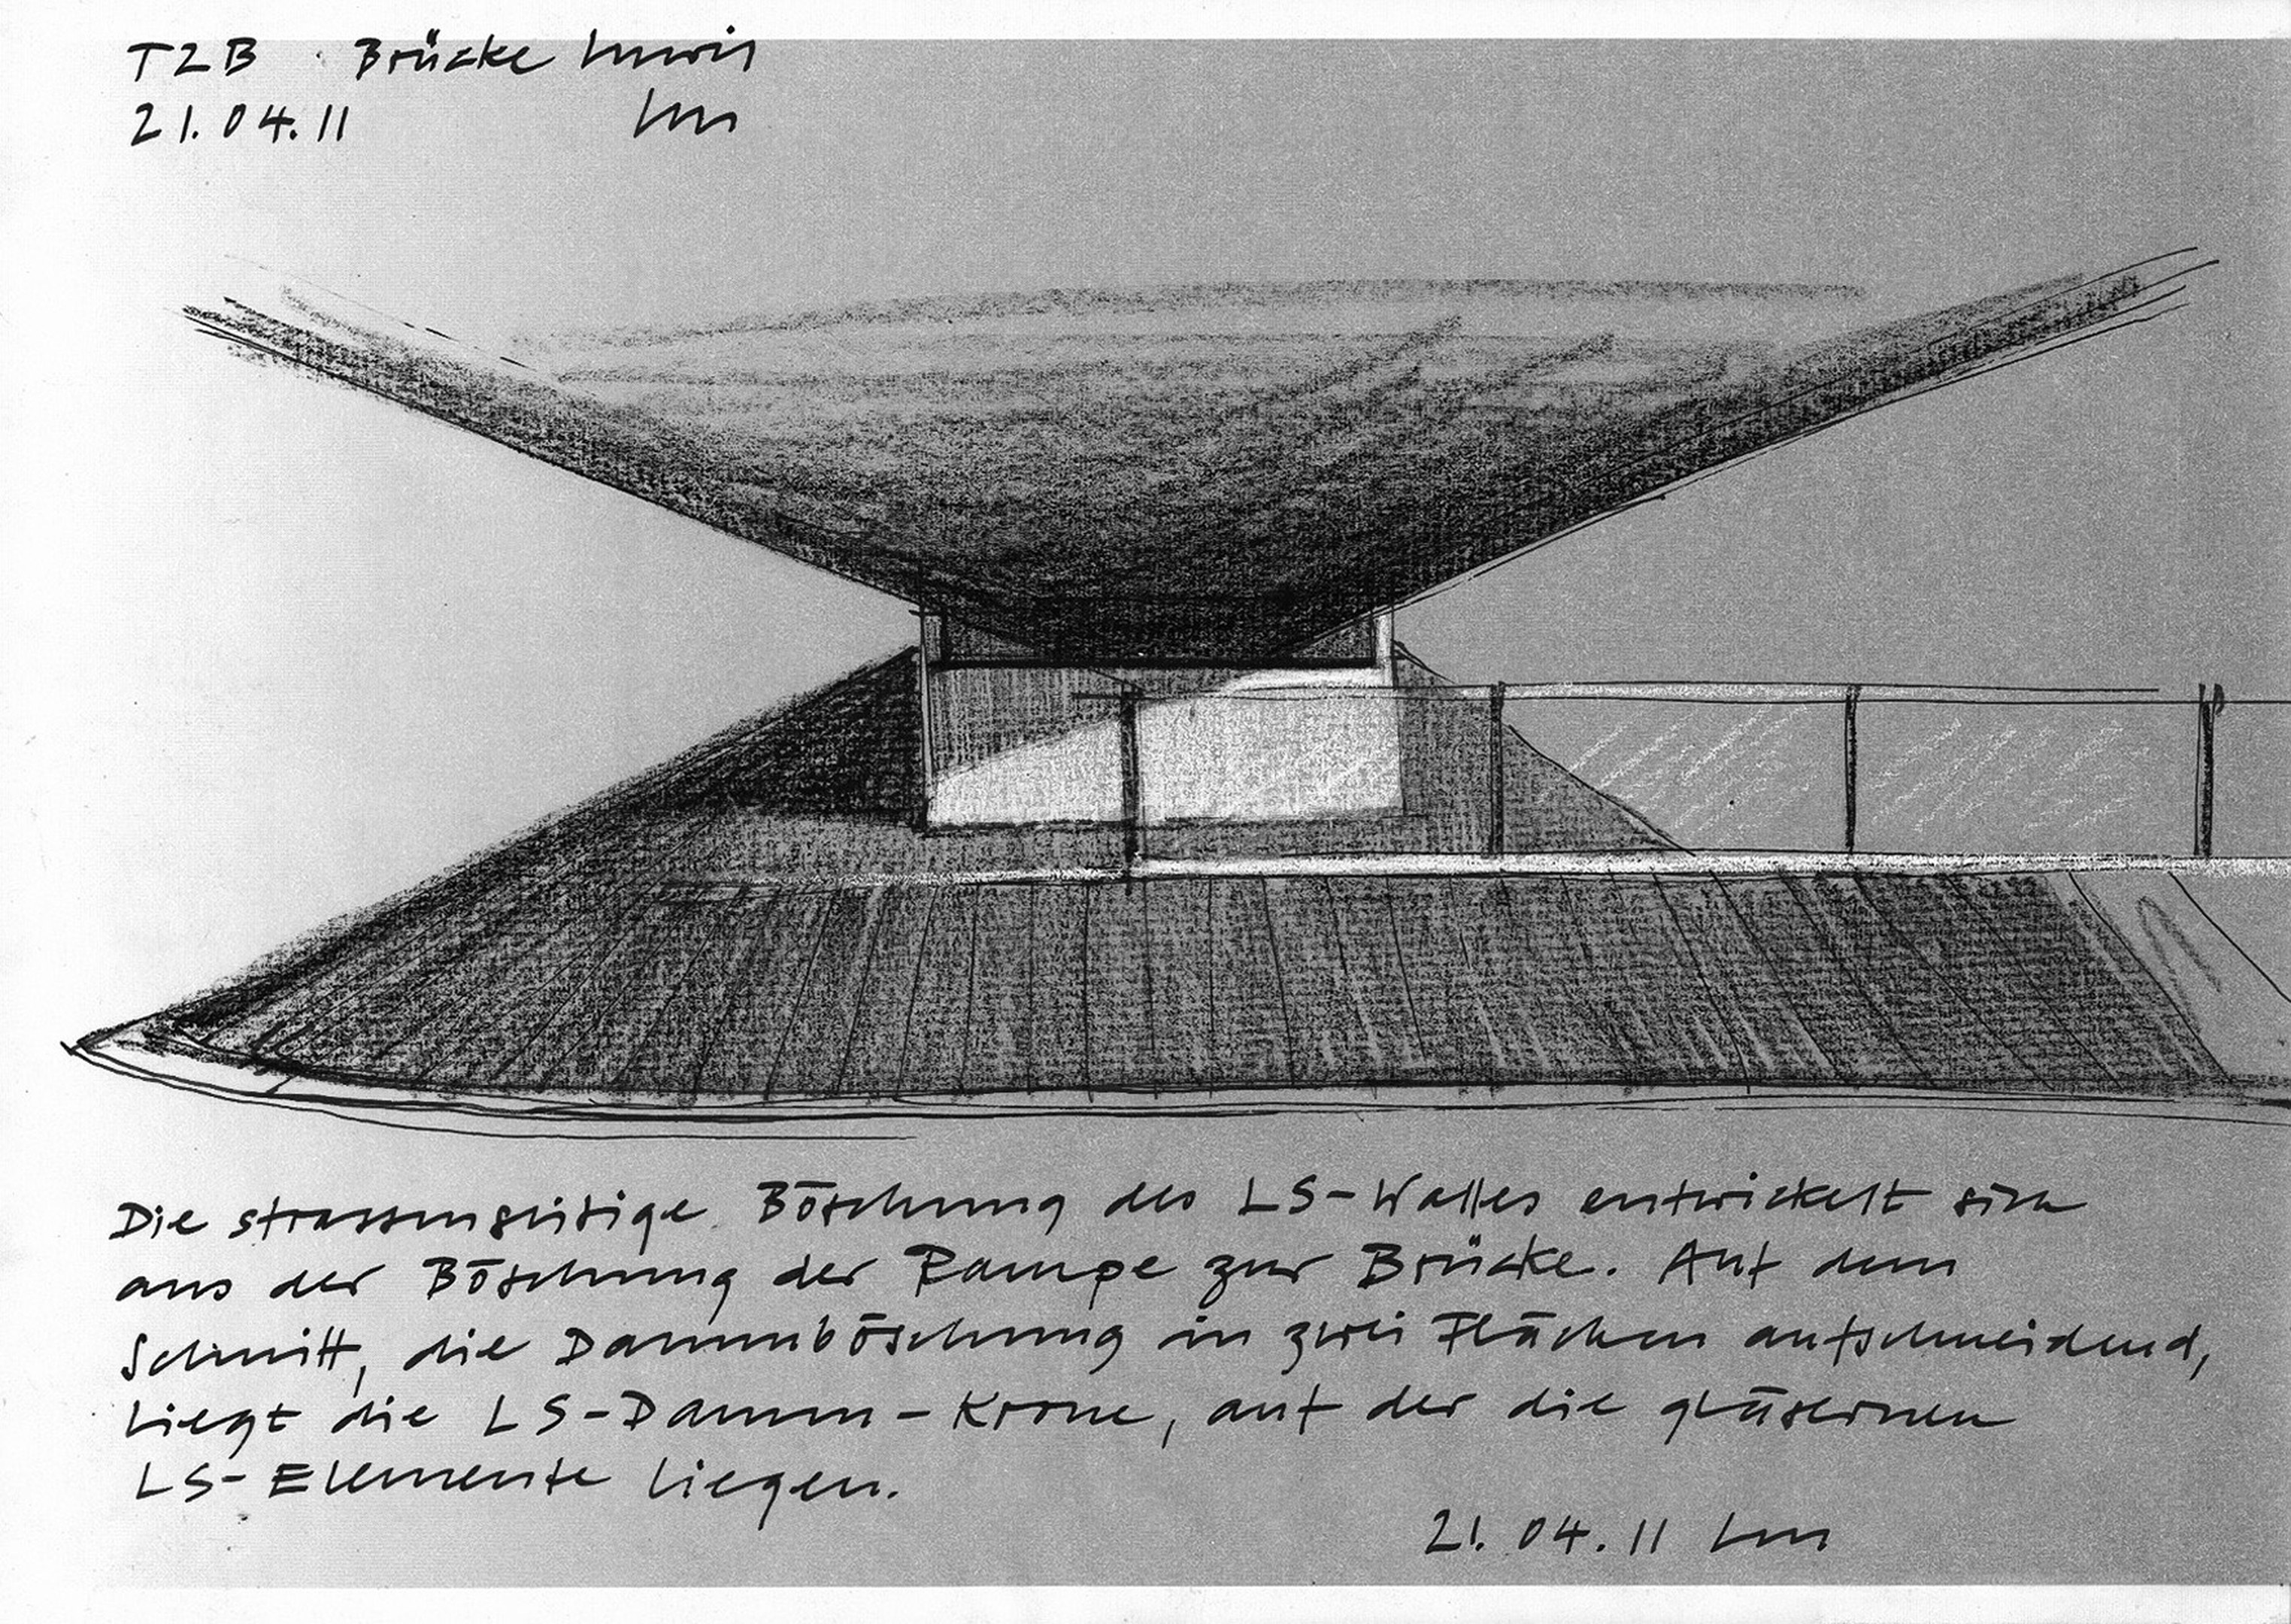 TZB Brücke Inwil
21.04.11
Die strassenseitige Böschung des LS-Walles entwickelt sich
aus der Böschung der Rampe zur Brücke. Auf dem
Schnitt, die Dammböschung in zwei Flächen aufschneidend,
liegt die LS-Damm-Krone, auf der die gläsernen
LS-Elemente liegen.
21.04.11